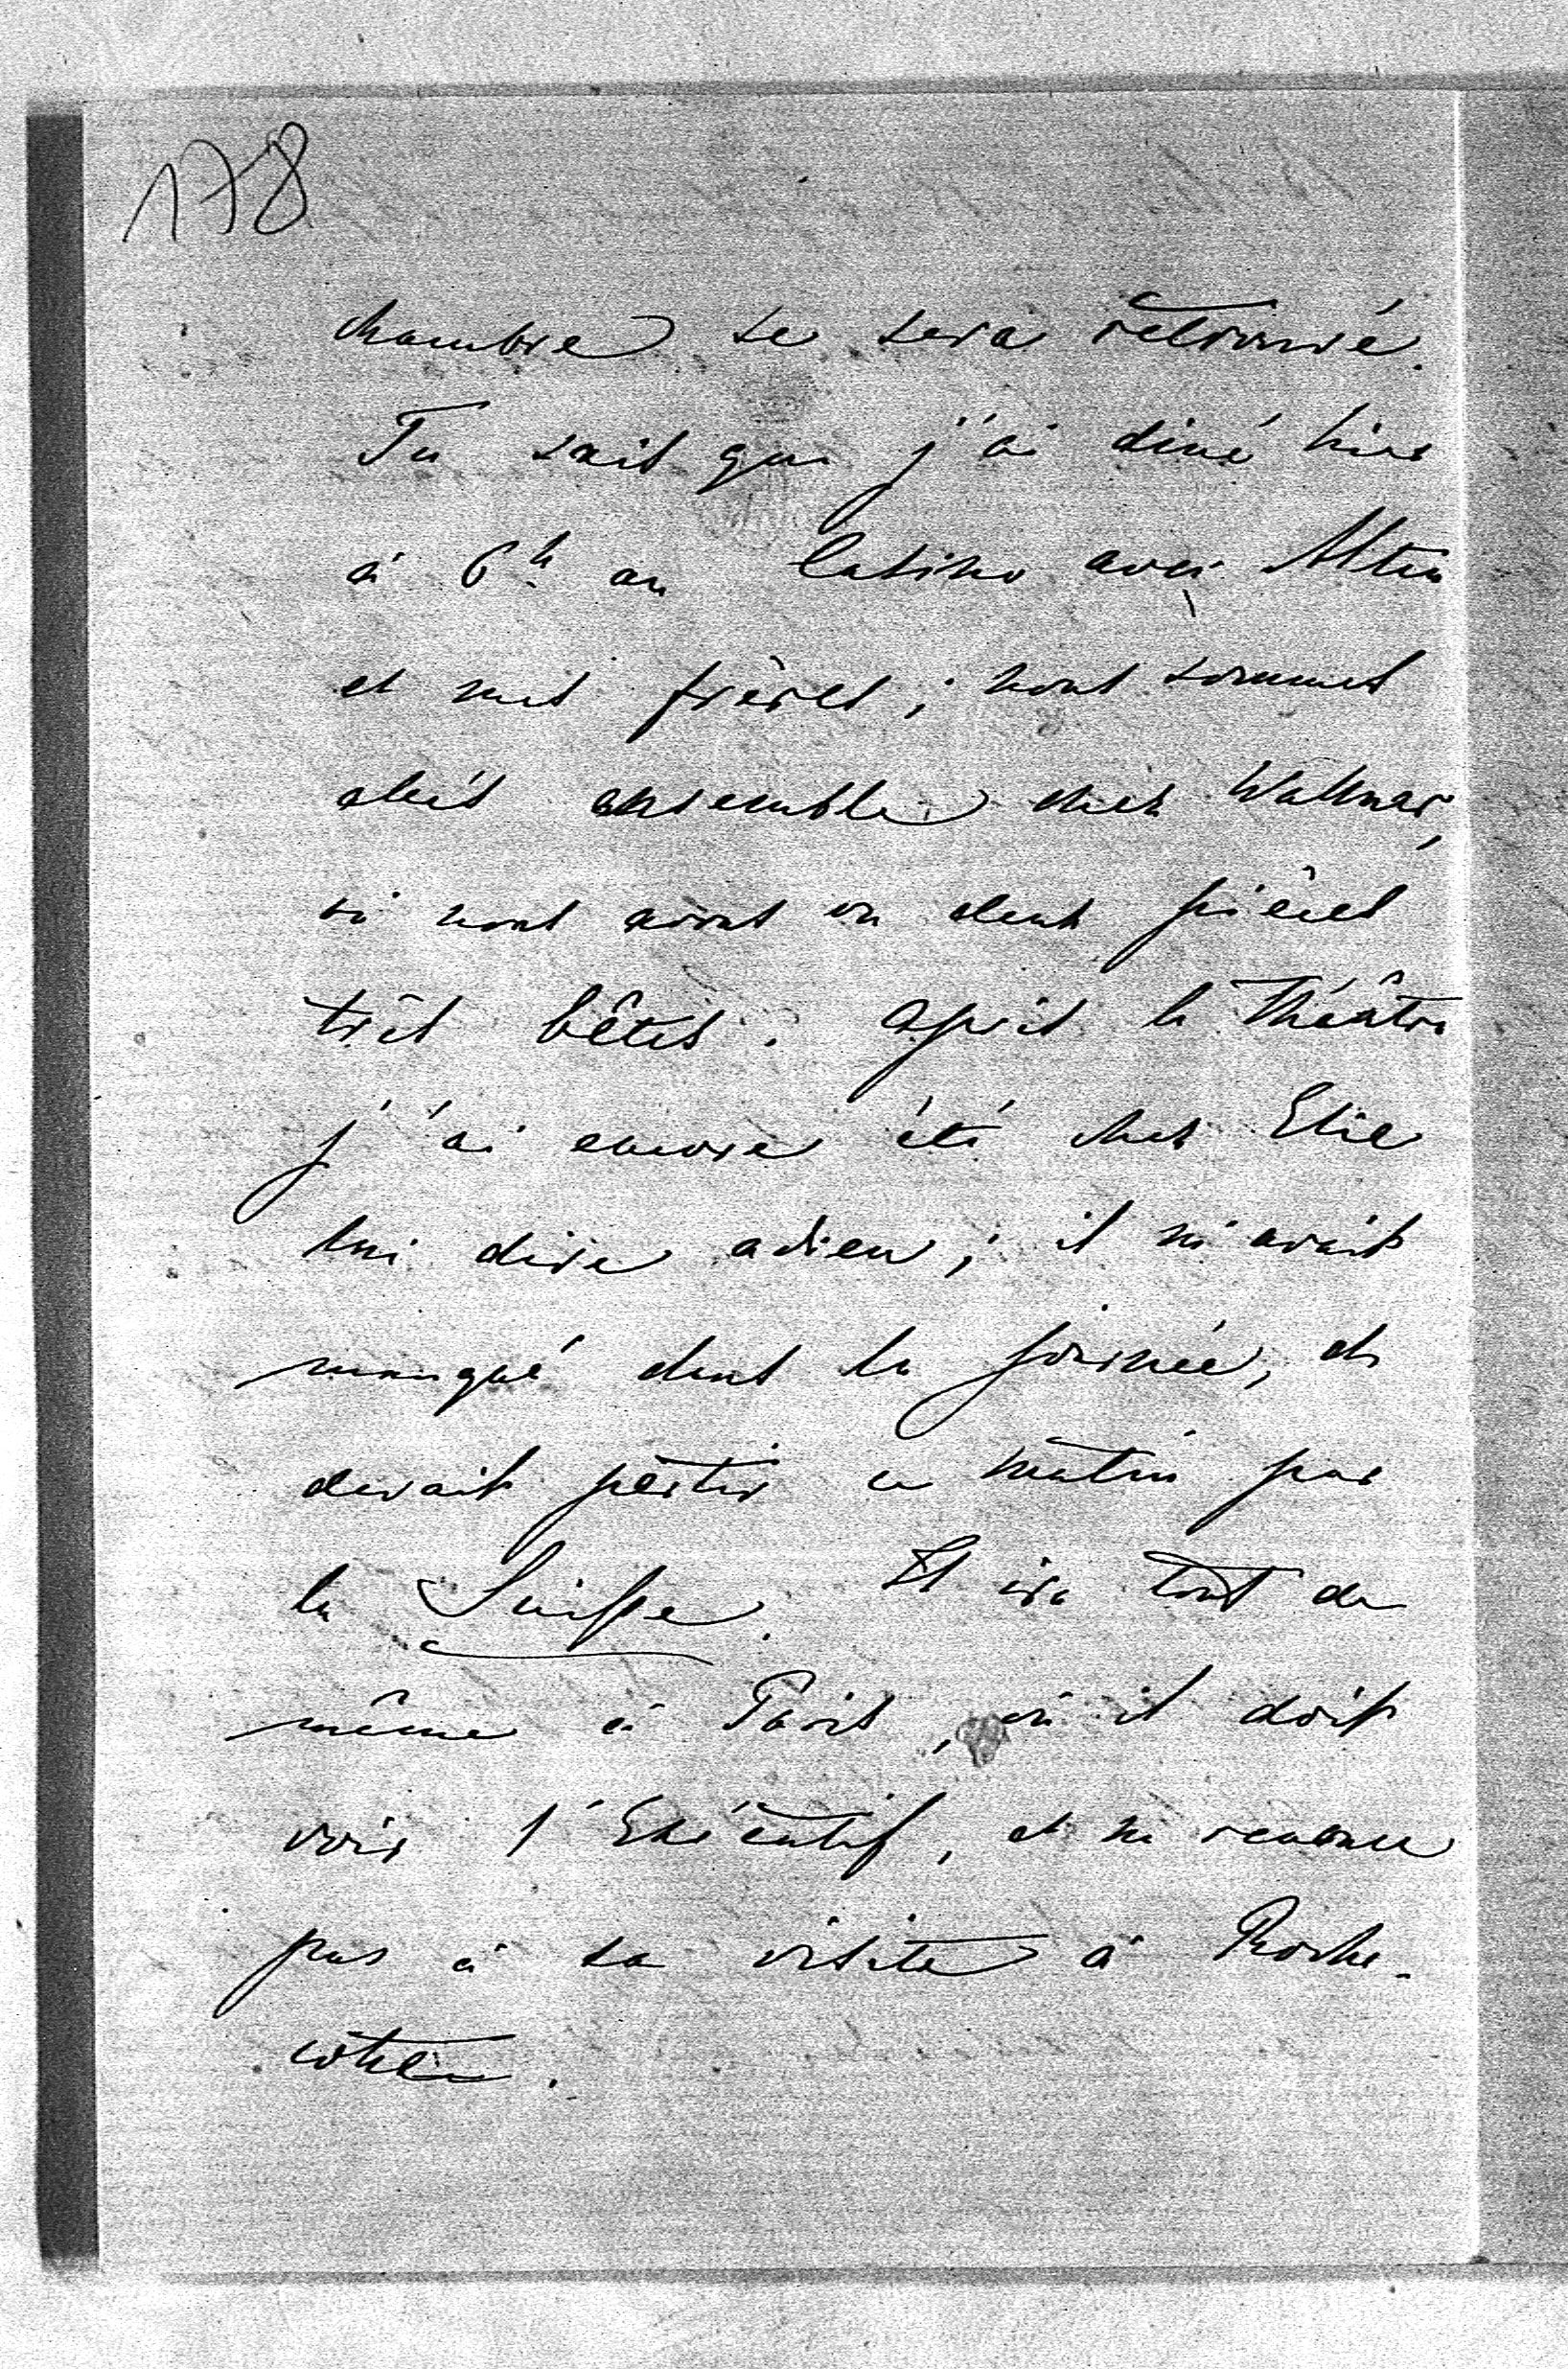 178
chambre se sera retrouvé.
Tu sais que j'ai diné hier
à 6h au Casino avec Alten
et mes frères ; nous sommes
allés ensemble chez Wallner,
où nous avons vu deux pièces
très bêtes. Après le Théâtre
j'ai encore été chez Elie
lui dire adieu ; il m'avait
manqué dans la journée, et
devait partir ce matin par
la Suisse. Il ira tout de
même à Paris, où il doit
voir l'Exécutif, et ne renonce
pas à sa visite à Roche-
cotte.